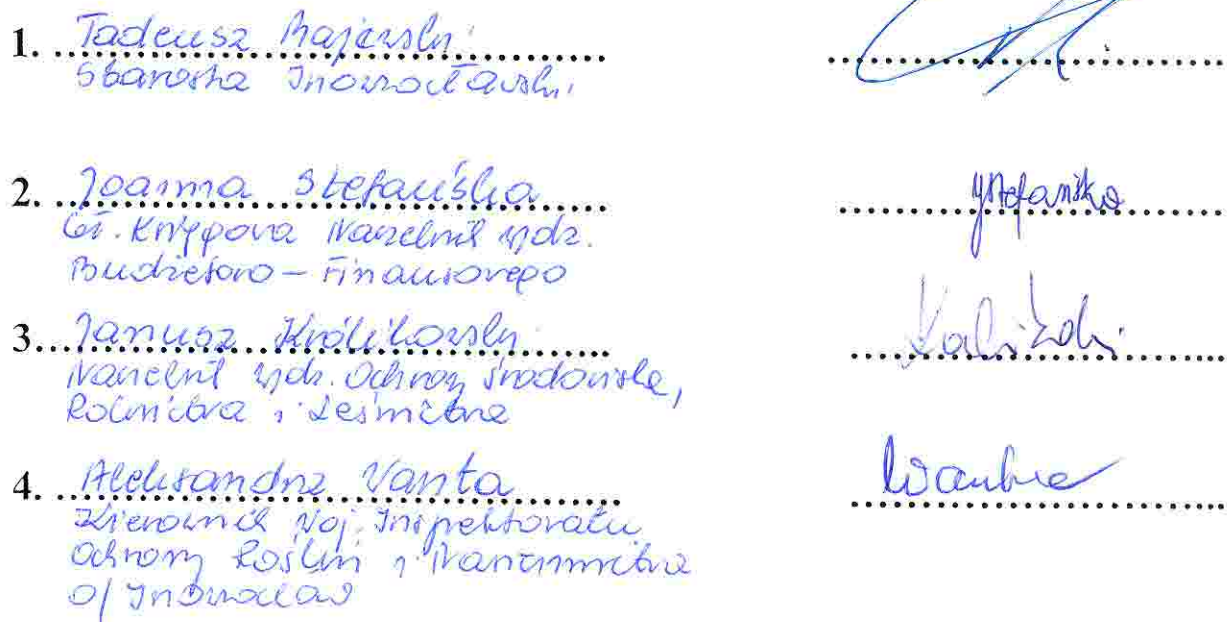 1. Tadeusz Majewski
Starosta Inowrocławski
2. Joanna Stefańska JStefańska
Gł. Księgowa Naczelnik Wydz.
Budżetowo – Finansowego
3. Janusz Królikowski
Naczelnik Wydz. Ochrony Środowiska,
Rolnictwa i Leśnictwa
4. Aleksandra Wanta Wanta
Kierownik Woj. Inspektoratu
Ochrony Roślin i Nasiennictwa
O/ Inowrocław